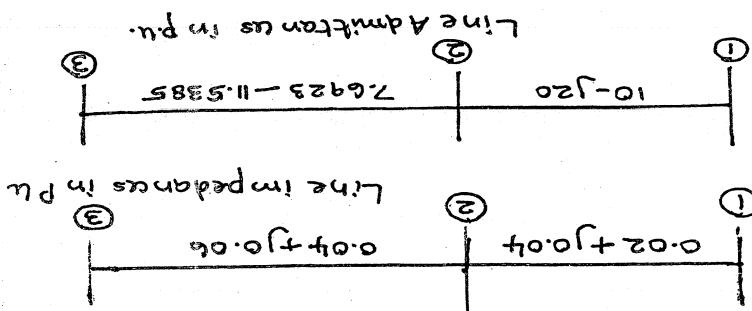 0.02 + j0.04 0.04 + j0.06
1 2 3
Line impedances in Pu
10-j20 7.6923 - 11.5385
1 2 3
Line Admittances in p.u.